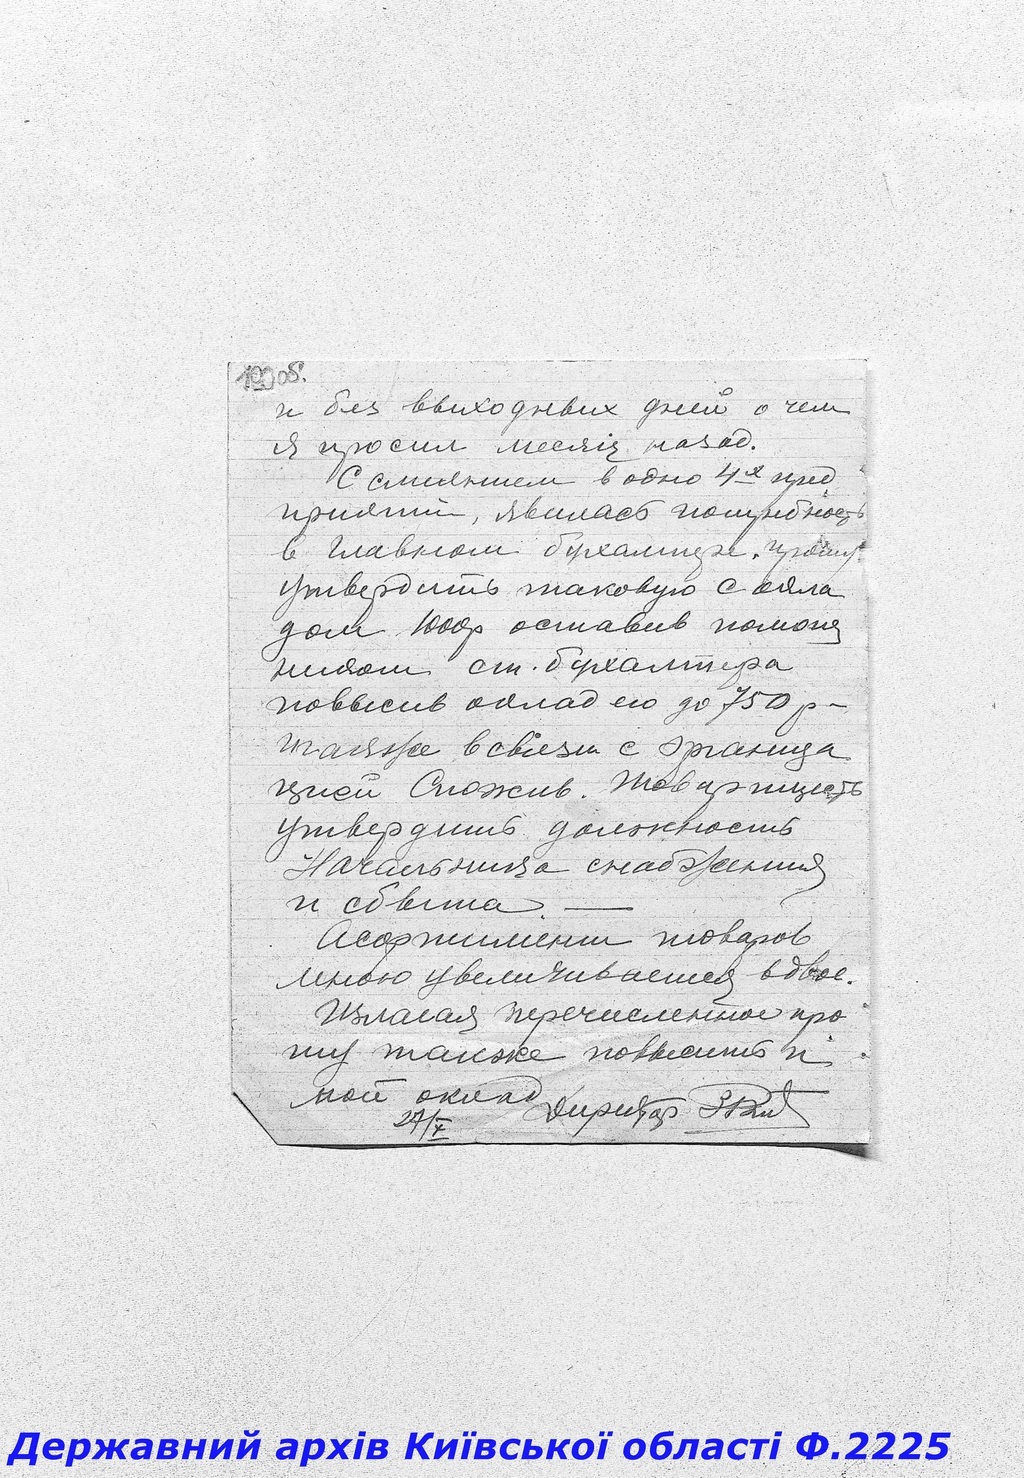 и без ввиходневих дней о чем
я просил месяц назад.
С слиянием в одно 4х пред
приятий, явилась потребность
в главном бухгалтере. прошу
утвердить таковую с окла
дом 1000р оставив помощ
ником ст. бухалтера
поввысив оклад его до 750 р-
также в связи с организа
цией Спожив. Товариществ
утвердить должность
Начальника снабжения
и сбыта. —
Асортимент товаров
мною увеличивается вдвое.
Излагая перечисленное про
шу также поввысить и
мой оклад
27/X Директор
Державний архів Київської області Ф.2225